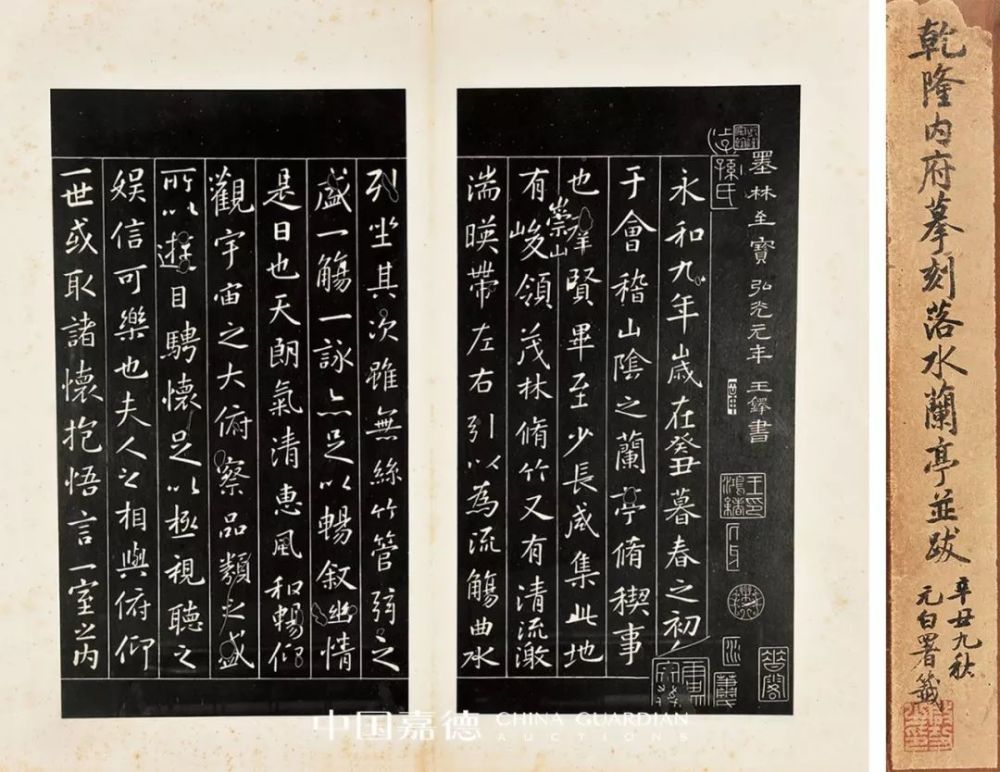 乾隆内府摹刻落水蘭亭並跋
辛丑九秋
元白署籤
墨林至寶 弘光元年 王鐸書
孫氏
王印鴻緒
永和九年歲在癸丑暮春之初
于會稽山陰之蘭亭脩稧事
也羣賢畢至少長咸集此地
有崇山峻領茂林脩竹又有清流激
湍暎帶左右引以為流觴曲水
列坐其次雖無絲竹管弦之
盛一觴一詠亦足以暢叙幽情
是日也天朗氣清惠風和暢仰
觀宇宙之大俯察品類之盛
所以遊目騁懷足以極視聽之
娛信可樂也夫人之相與俯仰
一世或取諸懷抱悟言一室之内
中国嘉德 CHINA GUARDIAN
AUCTIONS